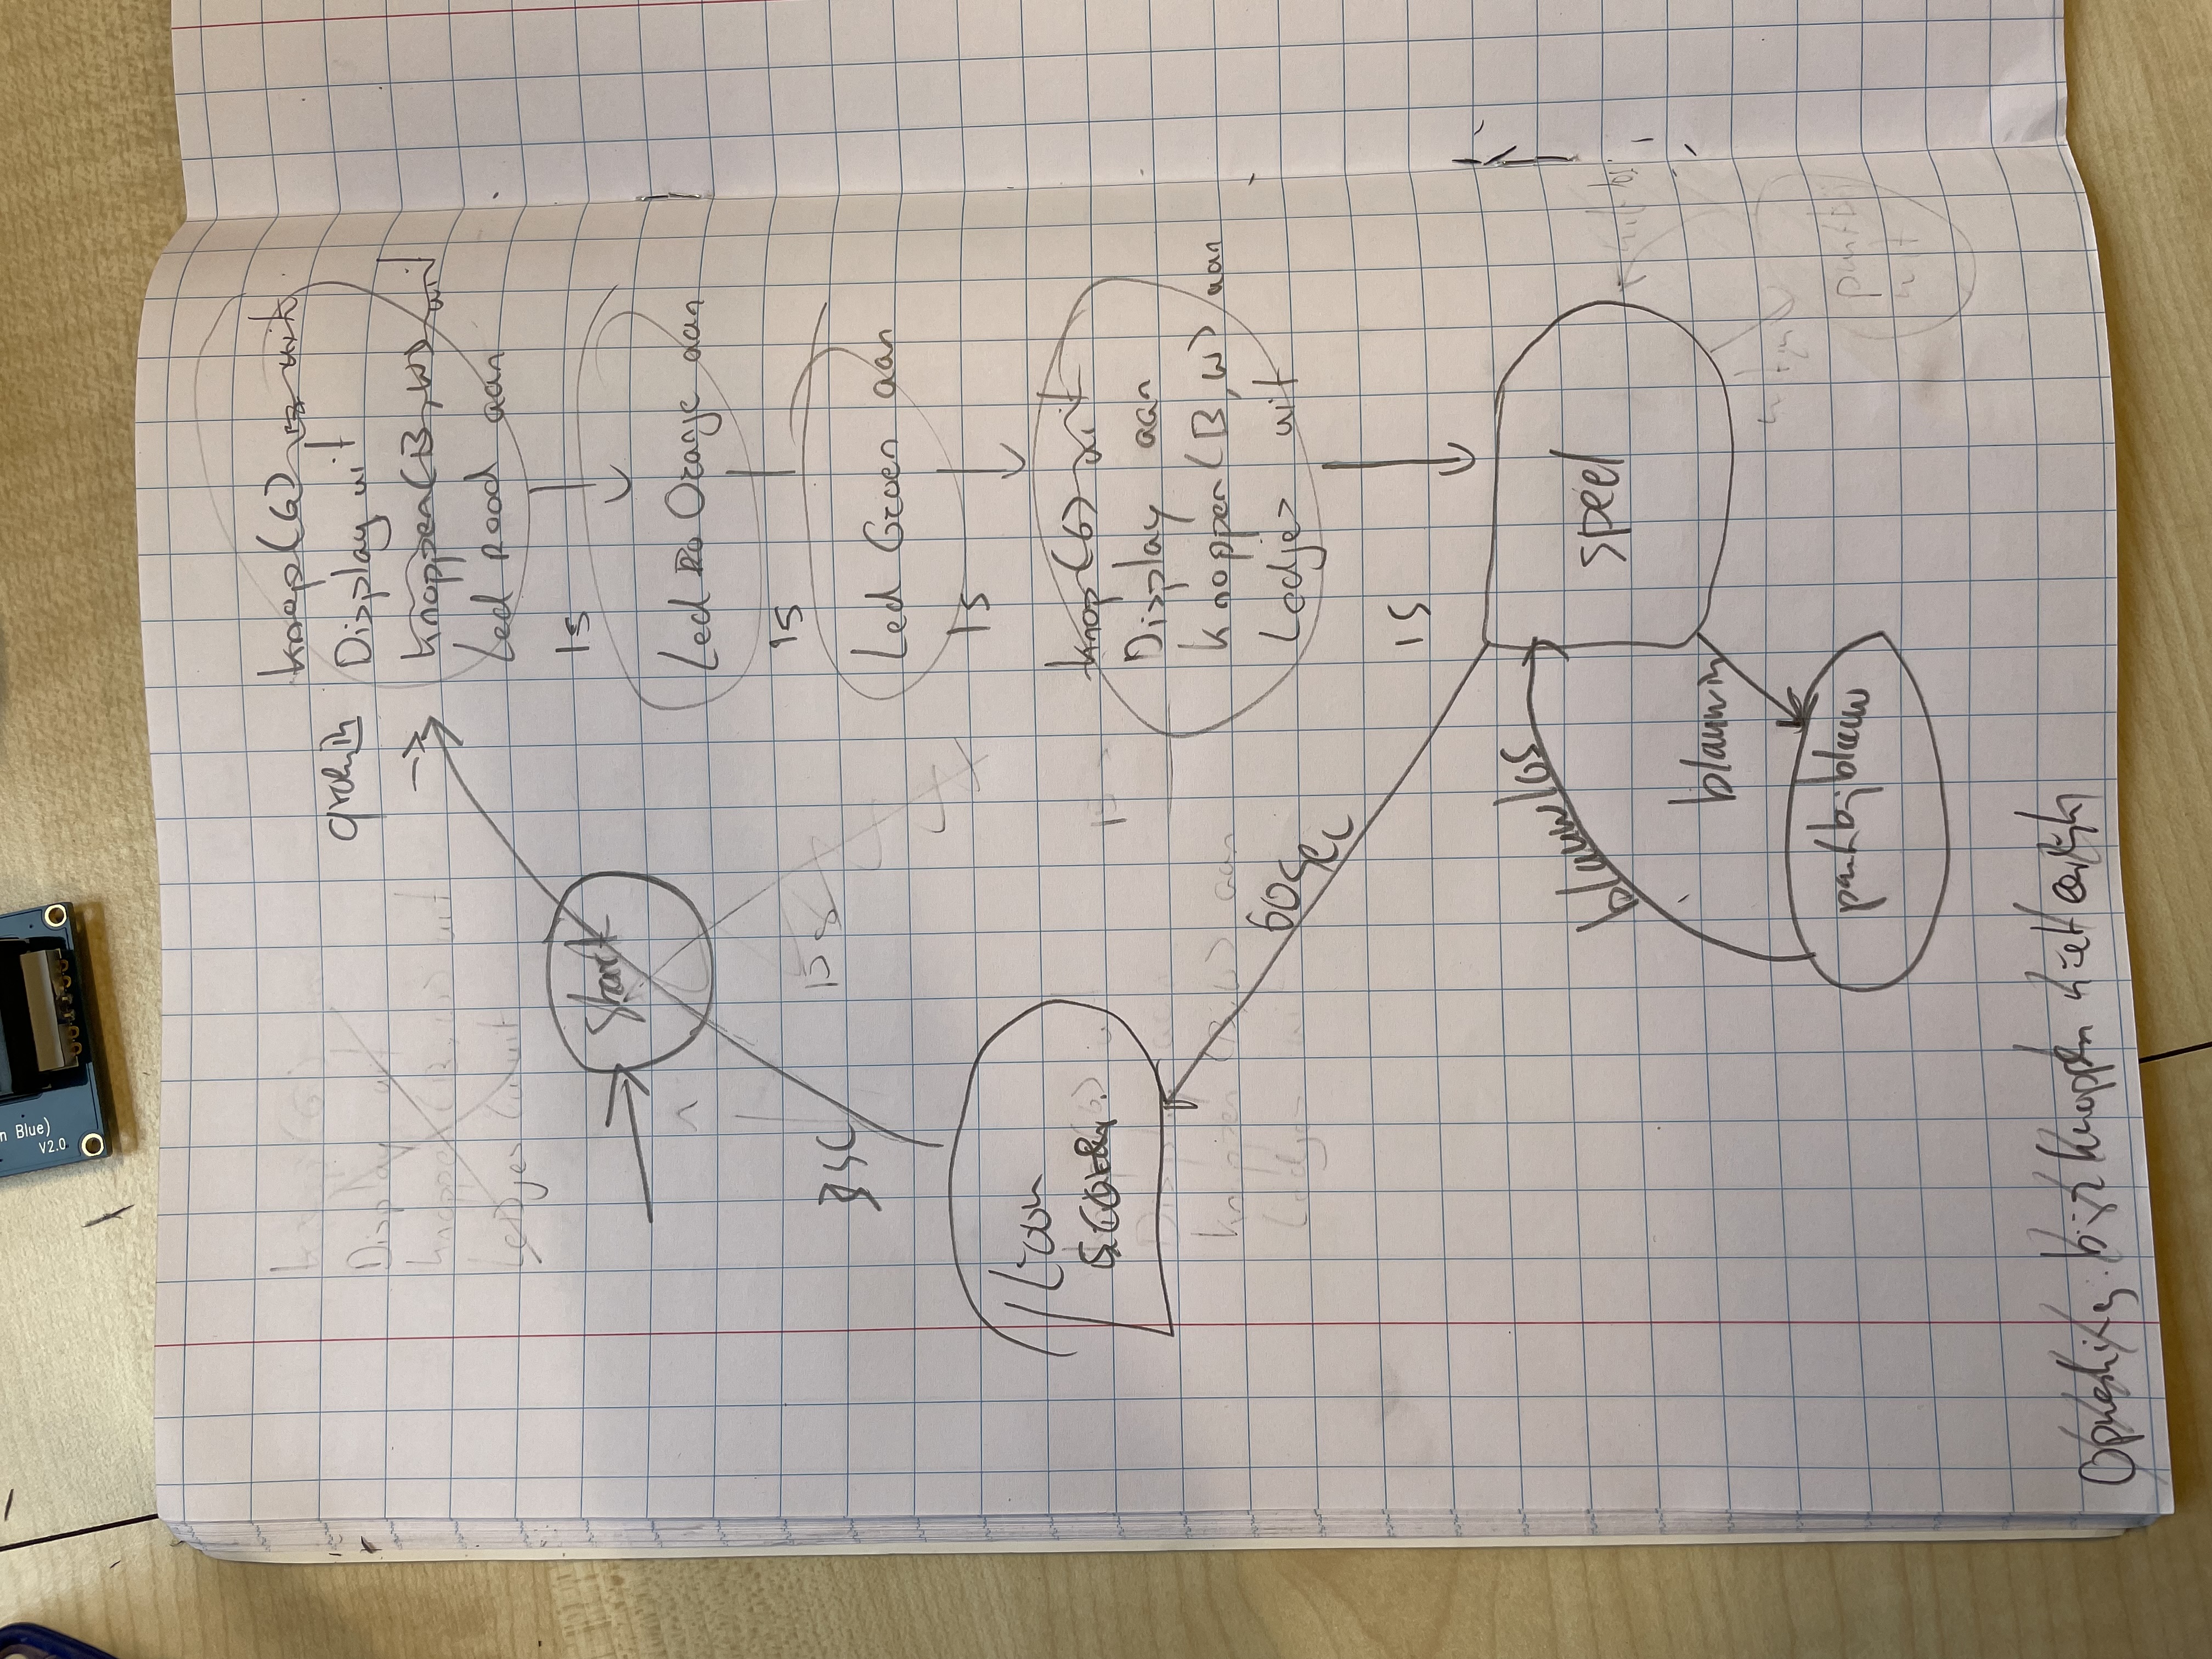 n Blue)
V2.0
Knop(G) uit
Display uit
Knoppen(B,W) uit
Led Rood aan
groen in
Display uit
Knoppen(B,W) uit
Ledjes uit
Start
1s
Led Oranje aan
1s
Led Groen aan
1s
3 sec
15 s
Toon
score
Knop(G) uit
Display aan
Knoppen(B,W) aan
Ledjes uit
Display aan
Knoppen(B,W) aan
Ledjes uit
60 sec
1S
blauw los
speel
wit los
blauw in
wit in
punt bij blauw
punt bij
wit
Opmerking: bij 2 knoppen niet